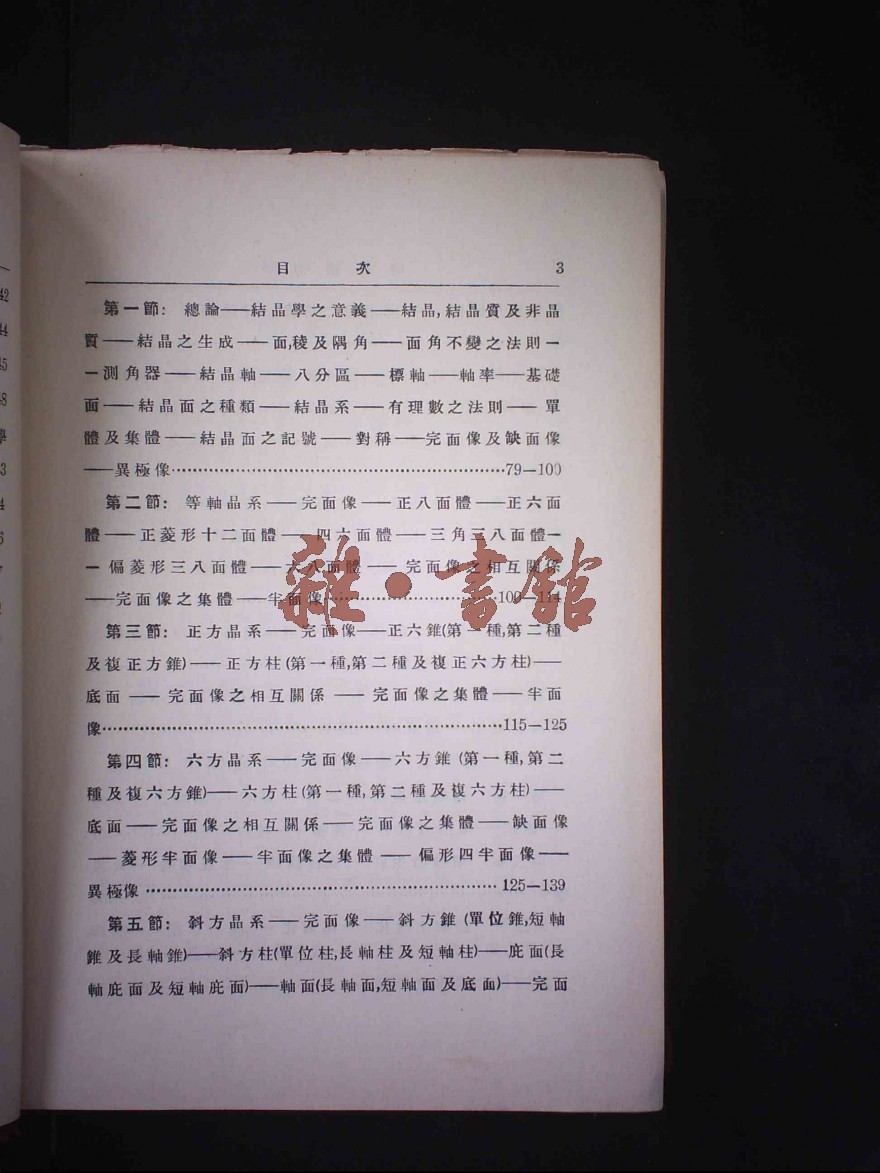 目 次 3
第一節: 總論——結晶學之意義——結晶,結晶質及非晶
質——結晶之生成——面,稜及隅角——面角不變之法則—
—測角器——結晶軸——八分區——標軸——軸率——基礎
面——結晶面之種類——結晶系——有理數之法則——單
體及集體——結晶面之記號——對稱——完面像及缺面像
——異極像……79—100
第二節: 等軸晶系——完面像——正八面體——正六面
體——正菱形十二面體——四六面體——三角三八面體—
—偏菱形三八面體——六八面體——完面像之相互關係
——完面像之集體——半面像……100—114
第三節: 正方晶系——完面像——正六錐(第一種,第二種
及複正方錐)——正方柱(第一種,第二種及複正六方柱)——
底面——完面像之相互關係——完面像之集體——半面
像……115—125
第四節: 六方晶系——完面像——六方錐(第一種,第二
種及複六方錐)——六方柱(第一種,第二種及複六方柱)——
底面——完面像之相互關係——完面像之集體——缺面像
——菱形半面像——半面像之集體——偏形四半面像——
異極像……125—139
第五節: 斜方晶系——完面像——斜方錐(單位錐,短軸
錐及長軸錐)——斜方柱(單位柱,長軸柱及短軸柱)——庇面(長
軸庇面及短軸庇面)——軸面(長軸面,短軸面及底面)——完面
雜·書館